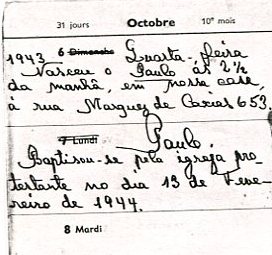 31 jours Octobre 10e mois
1943 6 Dimanche Quarta-feira
Nasceu o Paulo ás 2 ½
da manhã, em nossa casa,
á rua Marques de Caxias 653.
7 Lundi Paulo.
Baptisou-se pela igreja pro-
testante no dia 13 de Feve-
reiro de 1944.
8 Mardi